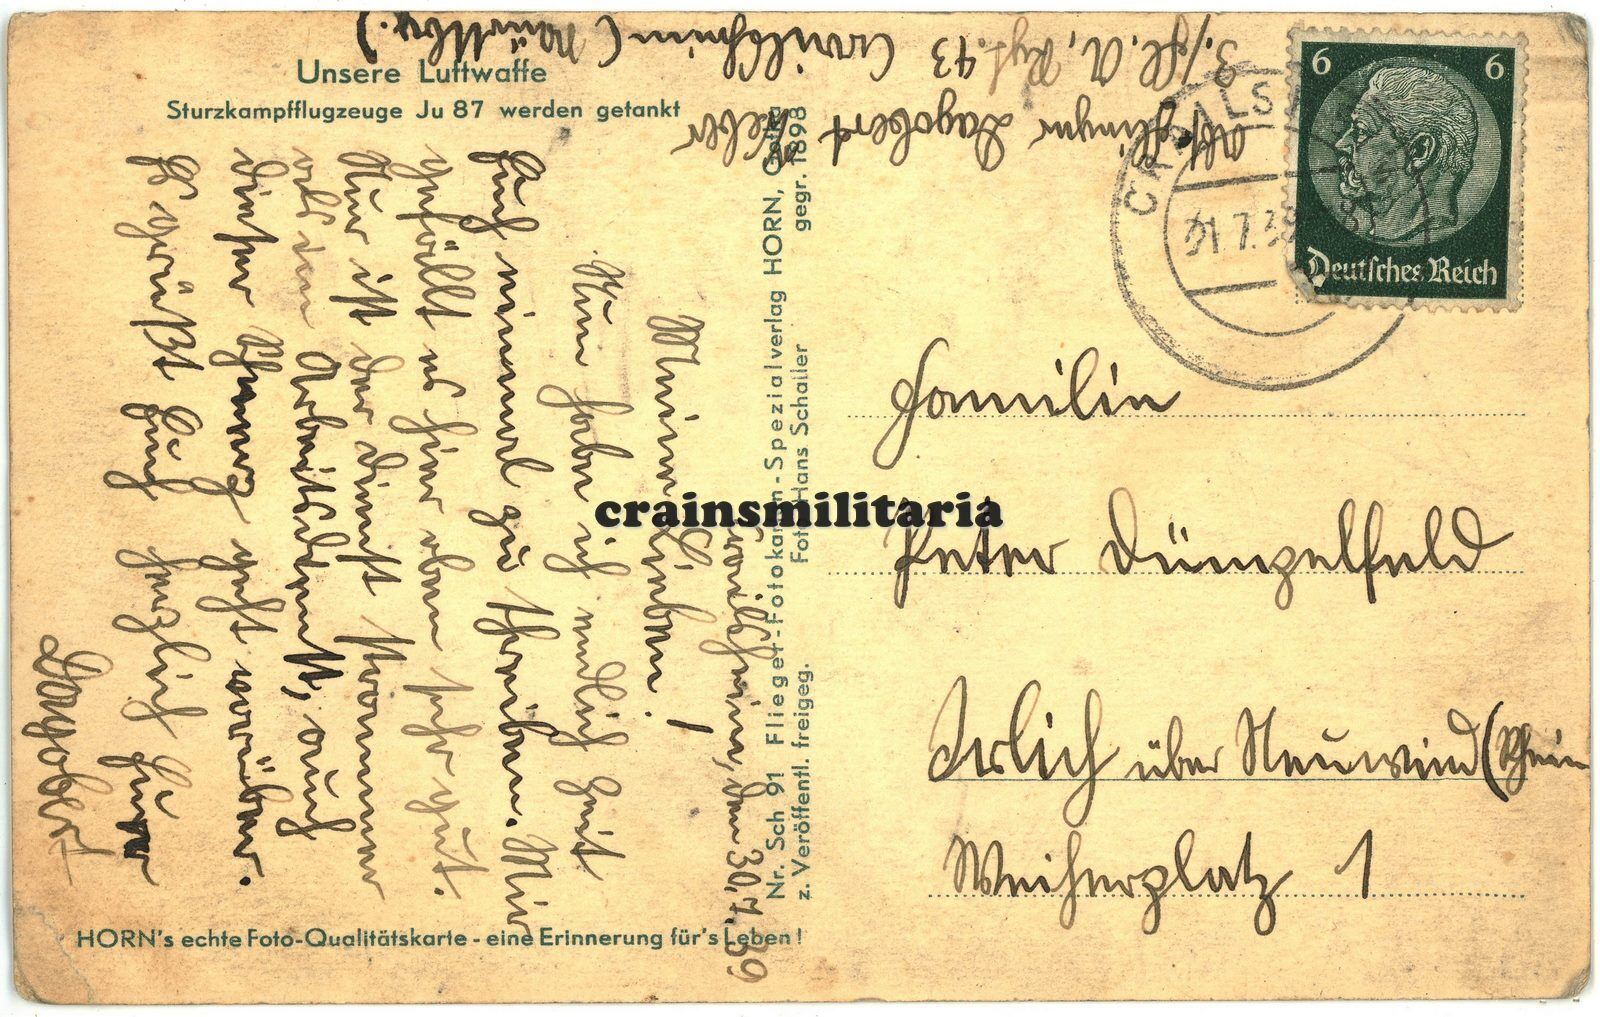 Unsere Luftwaffe
Sturzkampfflugzeuge Ju 87 werden getankt
Dagobert Weber
3./Fl. A. Rgt. 43 Crailsheim (Württbg.)
CRAILS
31.7.39
6 6
Deutsches Reich
Crailsheim, den 30.7.39
Meine Lieben!
Nun habe ich endlich Zeit
Euch einmal zu schreiben. Mir
gefällt es hier oben sehr gut.
Nur ist der Dienst strammer
als im Arbeitsdienst, auch
dieser geht vorüber.
Es grüßt Euch herzlich Euer
Dagobert
Nr. Sch 91 Flieger-Fotokarten-Spezialverlag HORN, Gotha
z. Veröffentl. freigeg. Foto Hans Schaller gegr. 1898
crainsmilitaria
Familie
Peter Dümpelfeld
Irlich über Neuwied (Rhein
Weiherplatz 1
HORN's echte Foto-Qualitätskarte - eine Erinnerung für's Leben!